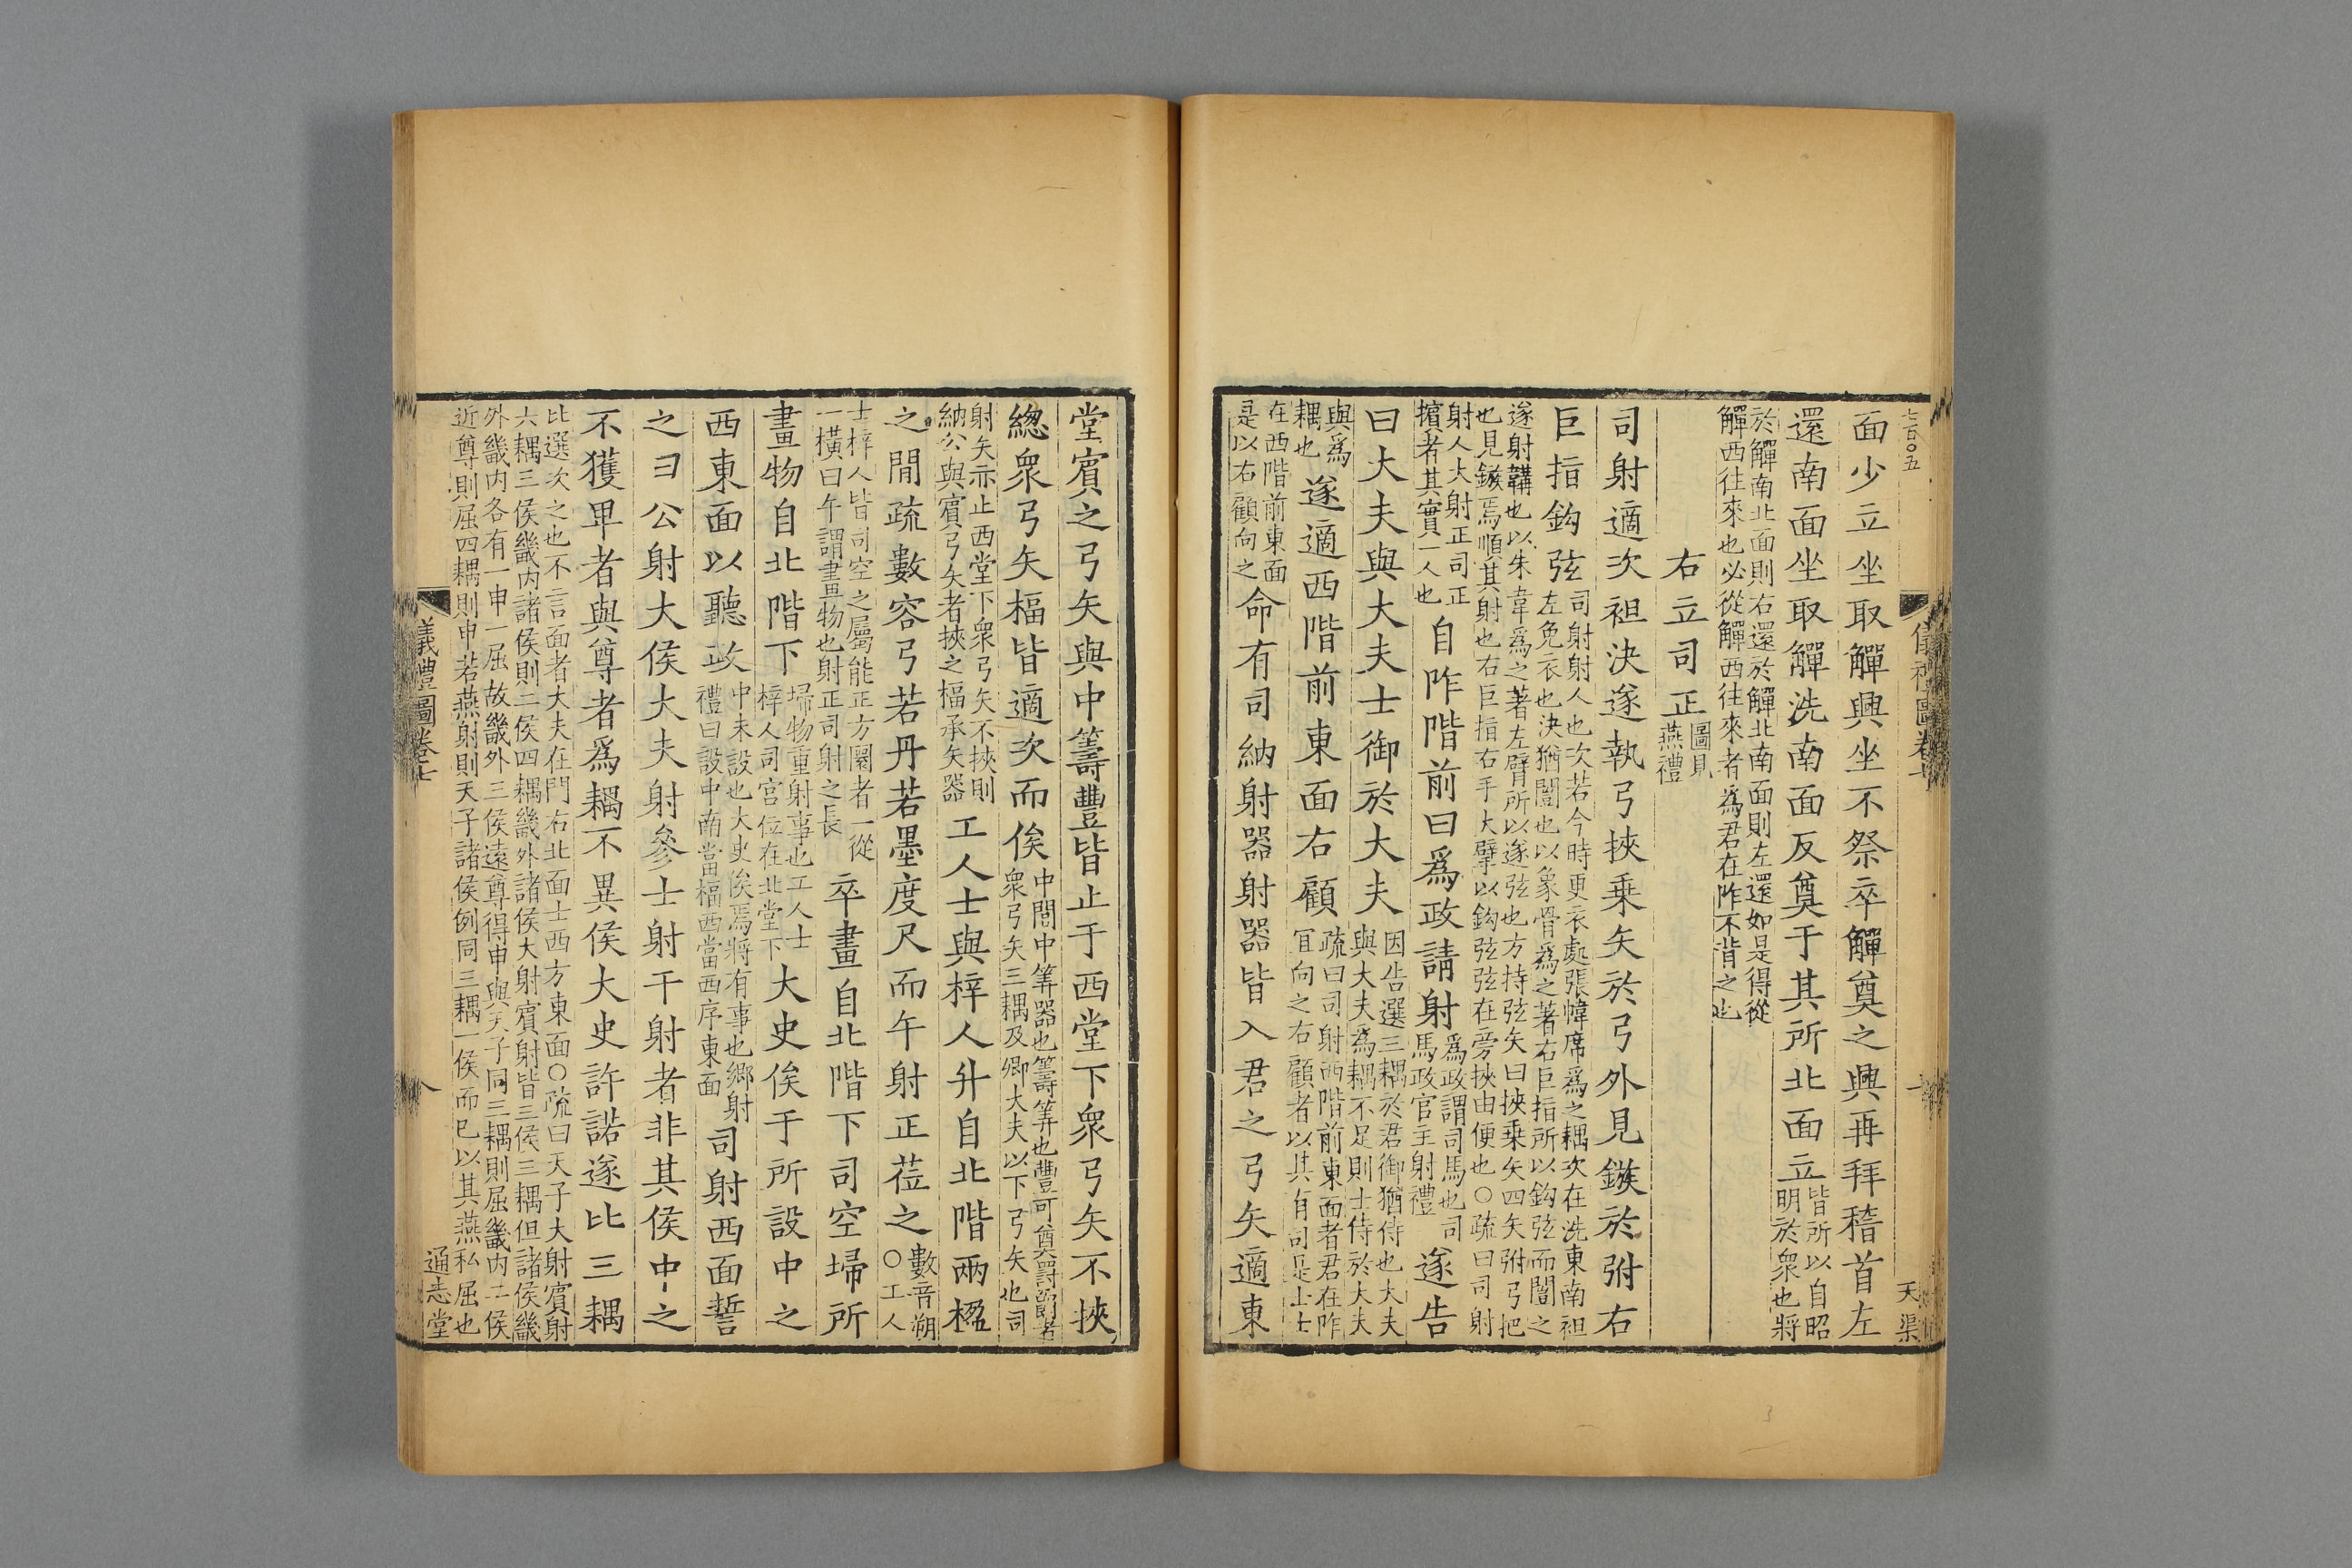 七百〇五
儀禮圖卷七
一
天渠
面少立坐取觶興坐不祭卒觶奠之興再拜稽首左
還南面坐取觶洗南面反奠于其所北面立皆所以自昭明於衆也將
於觶南北面則右還於觶北南面則左還如是得從觶西往來也必從觶西往來者爲君在阼不背之也
右立司正圖見燕禮
司射適次袒決遂執弓挾乗矢於弓外見鏃於弣右
巨指鈎弦司射射人也次若今時更衣處張幃席爲之耦次在洗東南袒左免衣也決猶闓也以象骨爲之著右巨指所以鈎弦而闓之
遂射韝也以朱韋爲之著左臂所以遂弦也方持弦矢曰挾乗矢四矢弣弓把也見鏃焉順其射也右巨指右手大擘以鈎弦弦在旁挾由便也○疏曰司射
射人大射正司正擯者其實一人也自阼階前曰爲政請射爲政謂司馬也司馬政官主射禮遂告
曰大夫與大夫士御於大夫因告選三耦於君御猶侍也大夫與大夫爲耦不足則士侍於大夫
與爲耦也遂適西階前東面右顧疏曰司射西階前東面者君在阼宜向之右顧者以其有司是士士
在西階前東面是以右顧向之命有司納射器射器皆入君之弓矢適東
堂賓之弓矢與中籌豐皆止于西堂下衆弓矢不挾
緫衆弓矢楅皆適次而俟中閭中筭器也籌筭也豐可奠罰爵者衆弓矢三耦及卿大夫以下弓矢也司
射矢亦止西堂下衆弓矢不挾則納公與賓弓矢者挾之楅承矢器工人士與梓人升自北階兩楹
之閒疏數容弓若丹若墨度尺而午射正莅之數音朔○工人
士梓人皆司空之屬能正方圜者一從一橫曰午謂畫物也射正司射之長卒畫自北階下司空埽所
畫物自北階下埽物重射事也工人士梓人司宮位在北堂下大史俟于所設中之
西東面以聽政中未設也大史俟焉將有事也鄉射禮曰設中南當楅西當西序東面司射西面誓
之曰公射大侯大夫射參士射干射者非其侯中之
不獲卑者與尊者爲耦不異侯大史許諾遂比三耦
比選次之也不言面者大夫在門右北面士西方東面○疏曰天子大射賓射六耦三侯畿内諸侯則二侯四耦畿外諸侯大射賓射皆三侯三耦但諸侯畿
外畿内各有一申一屈故畿外三侯遠尊得申與天子同三耦則屈畿内二侯近尊則屈四耦則申若燕射則天子諸侯例同三耦一侯而已以其燕私屈也
儀禮圖卷七
八
通志堂